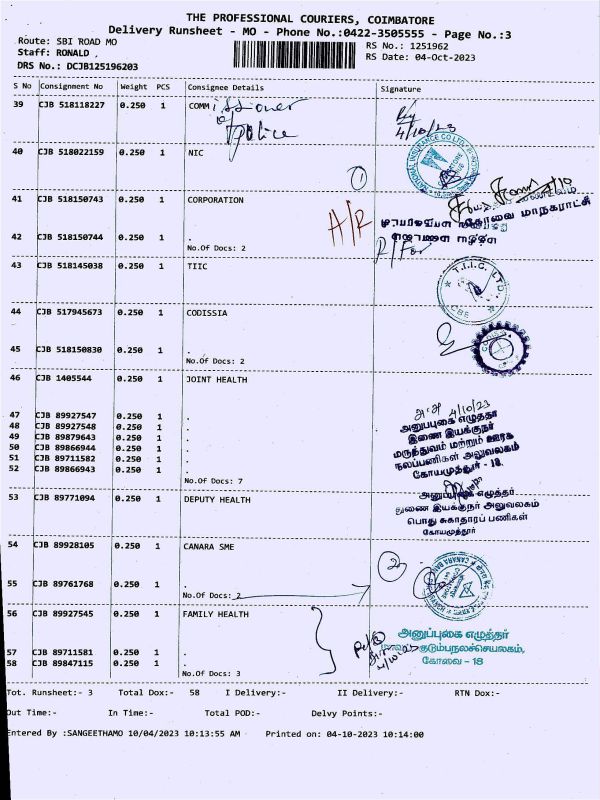 THE PROFESSIONAL COURIERS, COIMBATORE
Delivery Runsheet - MO - Phone No.:0422-3505555 - Page No.:3
Route: SBI ROAD MO
RS No.: 1251962
Staff: RONALD ,
RS Date: 04-Oct-2023
DRS No.: DCJB125196203
S No Consignment No Weight PCS Consignee Details Signature
39 CJB 518118227 0.250 1 COMMissioner
of
Police
4/10/23
40 CJB 518022159 0.250 1 NIC
NATIONAL INSURANCE CO LTD
1
41 CJB 518150743 0.250 1 CORPORATION
A/R
கோவை மாநகராட்சி
42 CJB 518150744 0.250 1 .
No.Of Docs: 2
43 CJB 518145038 0.250 1 TIIC
T.I.I.C. LTD
CBE
44 CJB 517945673 0.250 1 CODISSIA
45 CJB 518150830 0.250 1 .
No.Of Docs: 2
46 CJB 1405544 0.250 1 JOINT HEALTH
4/10/23
அனுப்புகை எழுத்தர்
இணை இயக்குநர்
மருத்துவம் மற்றும் ஊரக
நலப்பணிகள் அலுவலகம்
கோயமுத்தூர் - 18.
47 CJB 89927547 0.250 1 .
48 CJB 89927548 0.250 1 .
49 CJB 89879643 0.250 1 .
50 CJB 89866944 0.250 1 .
51 CJB 89711582 0.250 1 .
52 CJB 89866943 0.250 1 .
No.Of Docs: 7
53 CJB 89771094 0.250 1 DEPUTY HEALTH
அனுப்புகை எழுத்தர்
துணை இயக்குநர் அலுவலகம்
பொது சுகாதாரப் பணிகள்
கோயமுத்தூர்
54 CJB 89928105 0.250 1 CANARA SME
2
CANARA BANK
55 CJB 89761768 0.250 1 .
No.Of Docs: 2
56 CJB 89927545 0.250 1 FAMILY HEALTH
அனுப்புகை எழுத்தர்
குடும்பநலச்செயலகம்,
கோவை - 18
57 CJB 89711581 0.250 1 .
58 CJB 89847115 0.250 1 .
No.Of Docs: 3
Tot. Runsheet:- 3 Total Dox:- 58 I Delivery:- II Delivery:- RTN Dox:-
Out Time:- In Time:- Total POD:- Delvy Points:-
Entered By :SANGEETHAMO 10/04/2023 10:13:55 AM Printed on: 04-10-2023 10:14:00